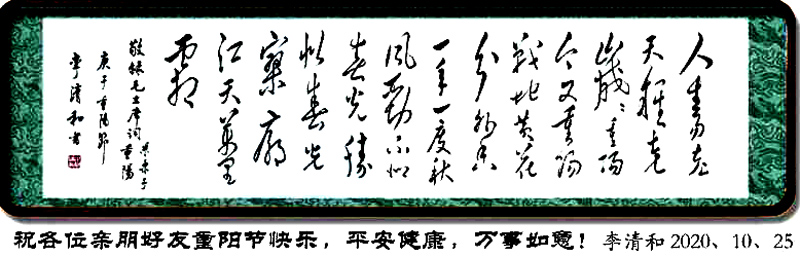 人生易老
天難老
歲歲重陽
今又重陽
戰地黄花
分外香
一年一度秋
風勁不似
春光勝
似春光
寥廓
江天萬里
霜
敬録毛主席词采桑子重陽
庚子重陽節
李清和书
祝各位亲朋好友重阳节快乐，平安健康，万事如意！李清和2020、10、25